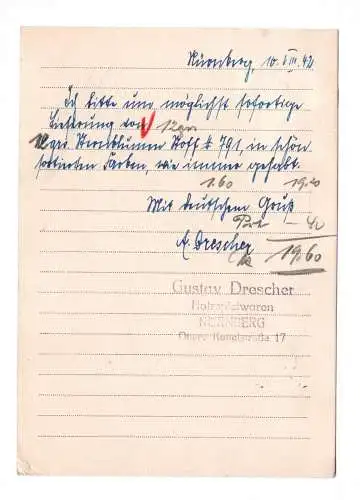 Nürnberg, 10. VIII. 42
Ich bitte um möglichst sofortige
Lieferung von 12
Stoff # 791, in schön
sortierten Farben, wie immer gehabt.
1.60 19.20
Mit deutschem Gruß,
- 40
Drescher
19.60
Gustav Drescher
NÜRNBERG
Obere 17